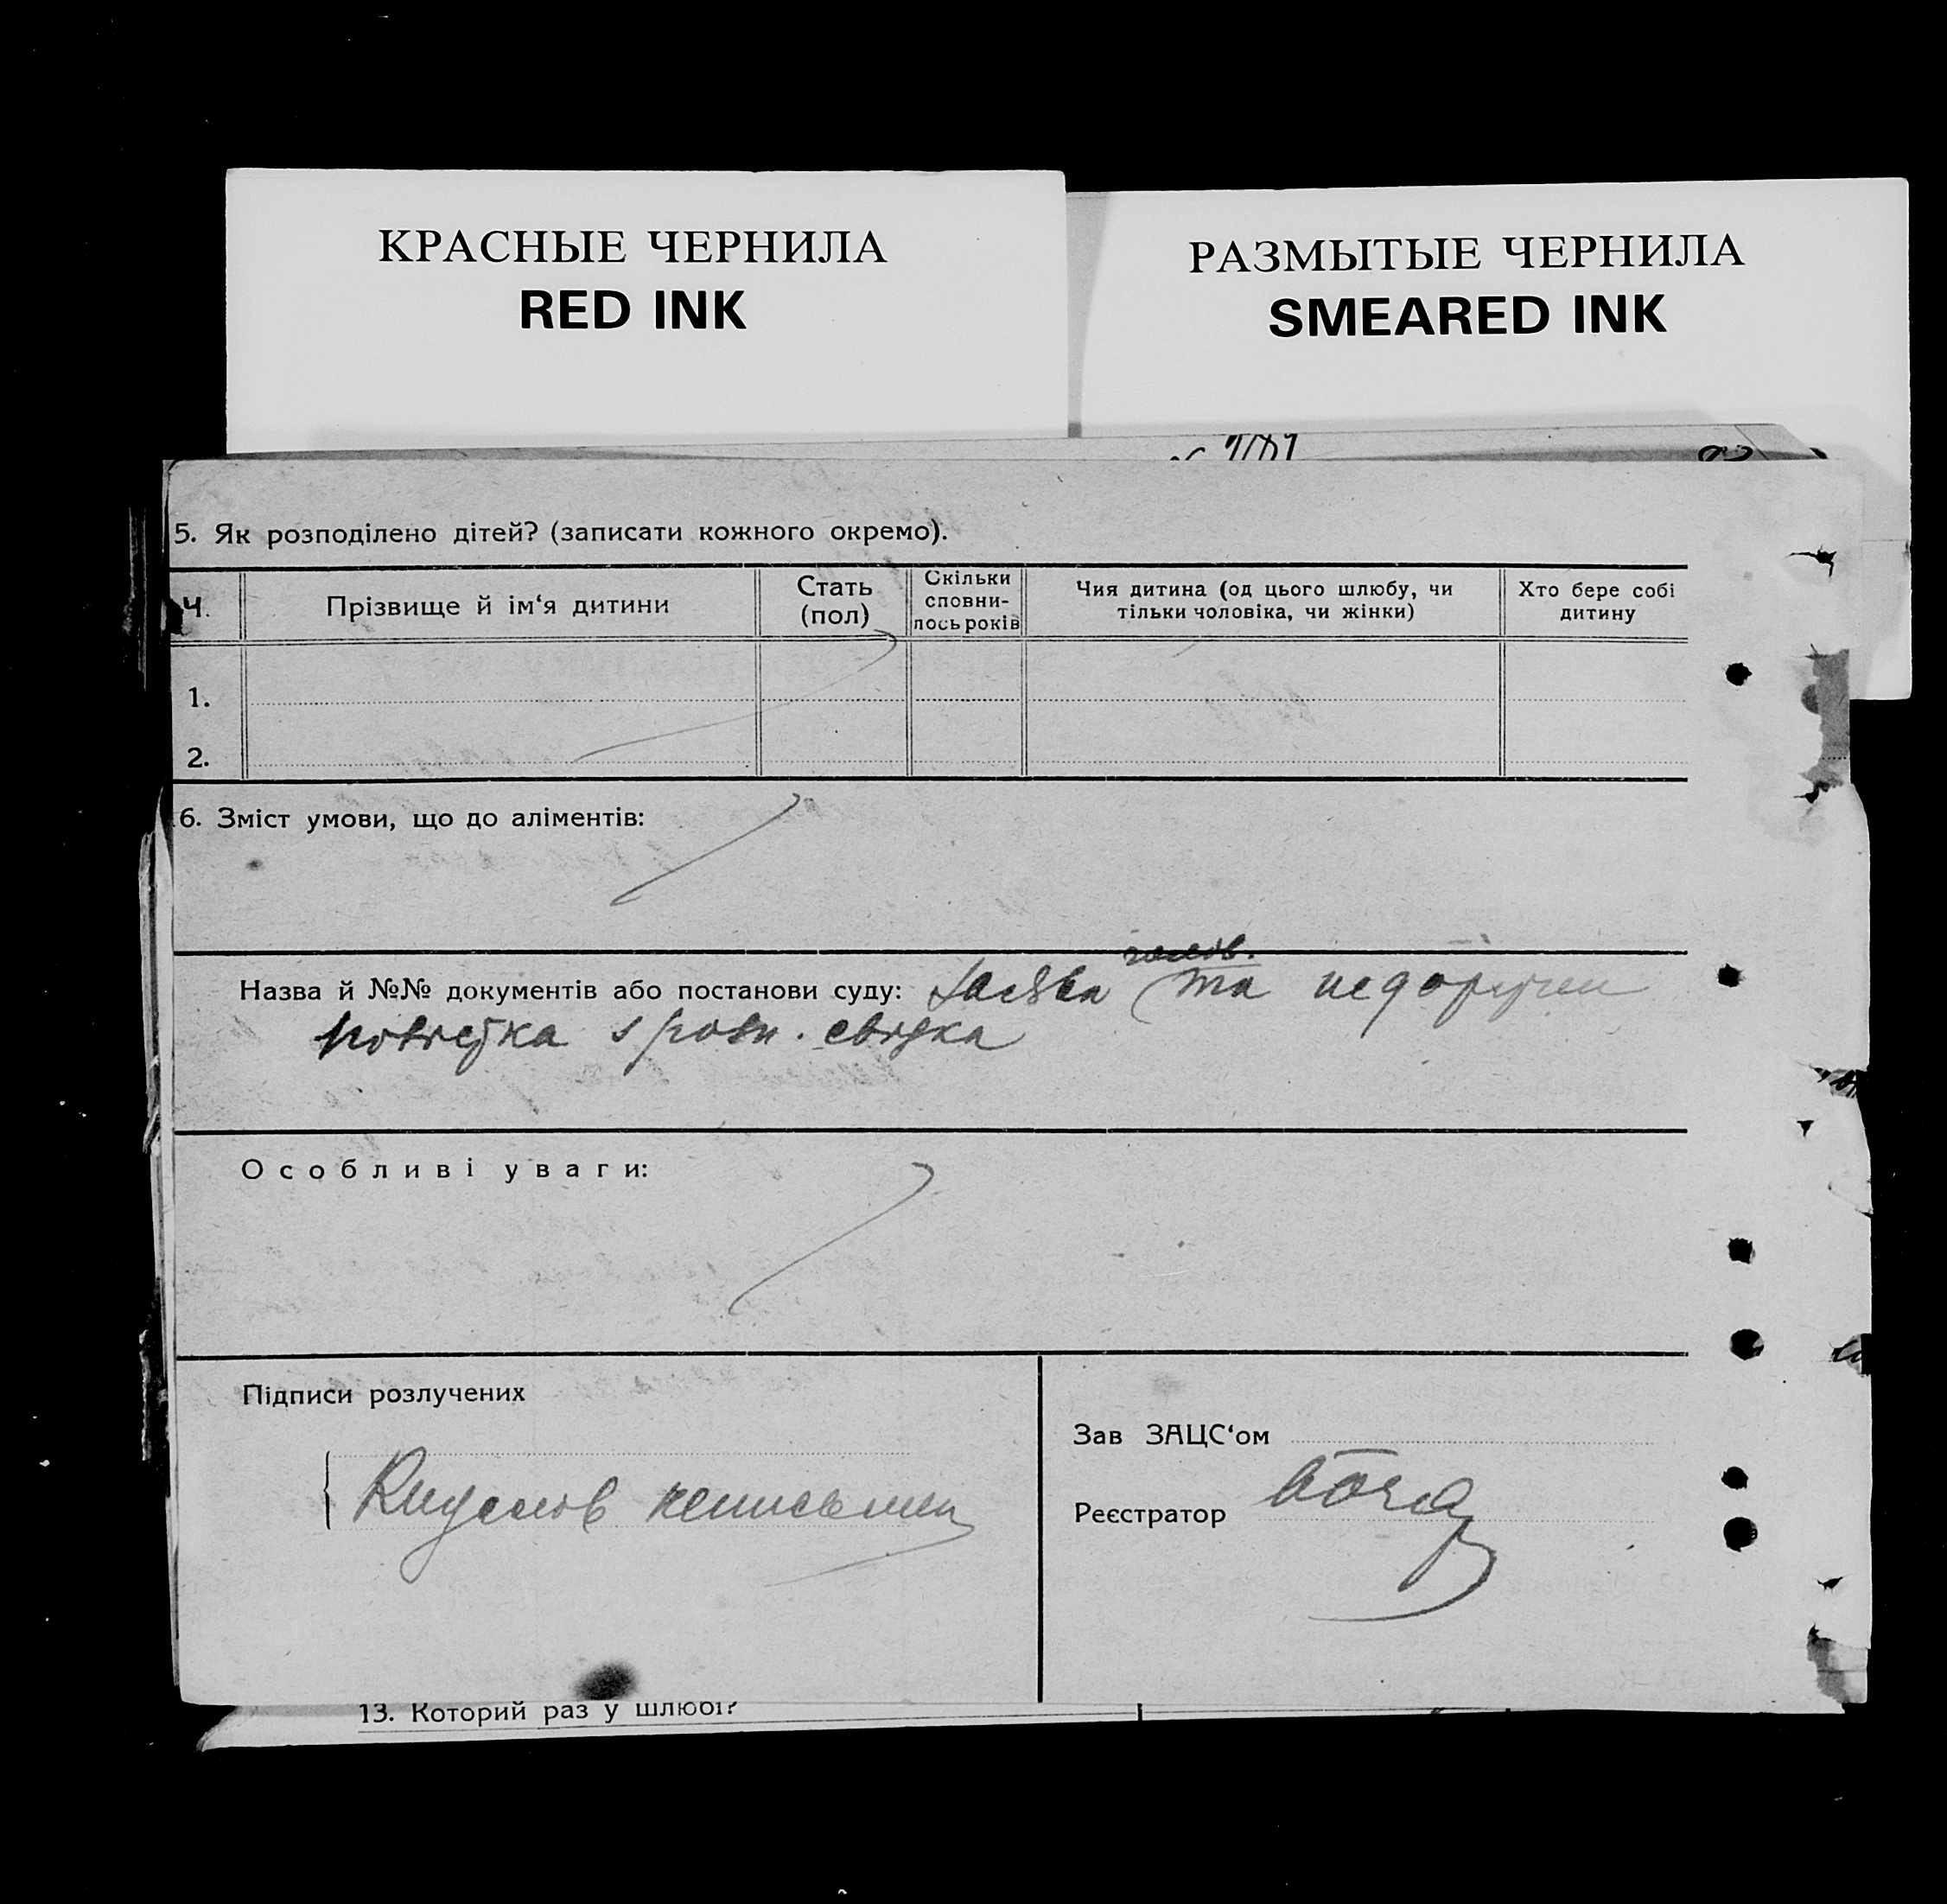 КРАСНЫЕ ЧЕРНИЛА
RED INK
РАЗМЫТЫЕ ЧЕРНИЛА
SMEARED INK
5. Як розподілено дітей? (записати кожного окремо).
Ч.
Прізвище й ім‘я дитини
Стать
(пол)
Скільки
сповни-
лось років
Чия дитина (од цього шлюбу, чи
тільки чоловіка, чи жінки)
Хто бере собі
дитину
1.
2.
6. Зміст умови, що до аліментів:
Назва й №№ документів або постанови суду: та
свідка
Особливі уваги:
Підписи розлучених
Зав ЗАЦС‘ом
Реєстратор
13. Которий раз у шлюбі?